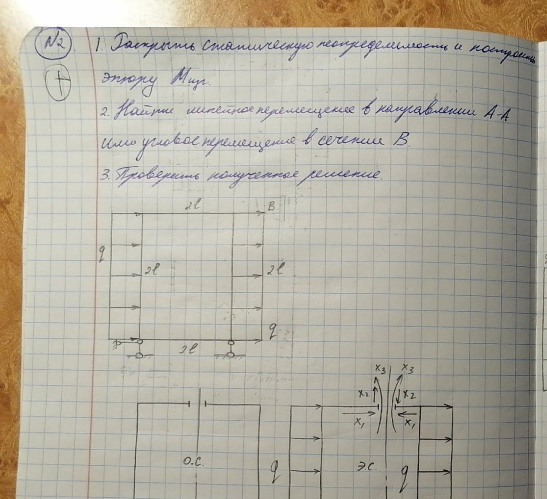 N2 1. Раскрыть статическую неопределимость и построить
эпюру Mизг.
2. Найти линейное перемещение в направлении А-А
или угловое перемещение в сечении В.
3. Проверить полученное решение.
2l B
q 2l 2l
q
2l
x3 x3
x2 x2
x1 x1
О.С. q Э.С. q